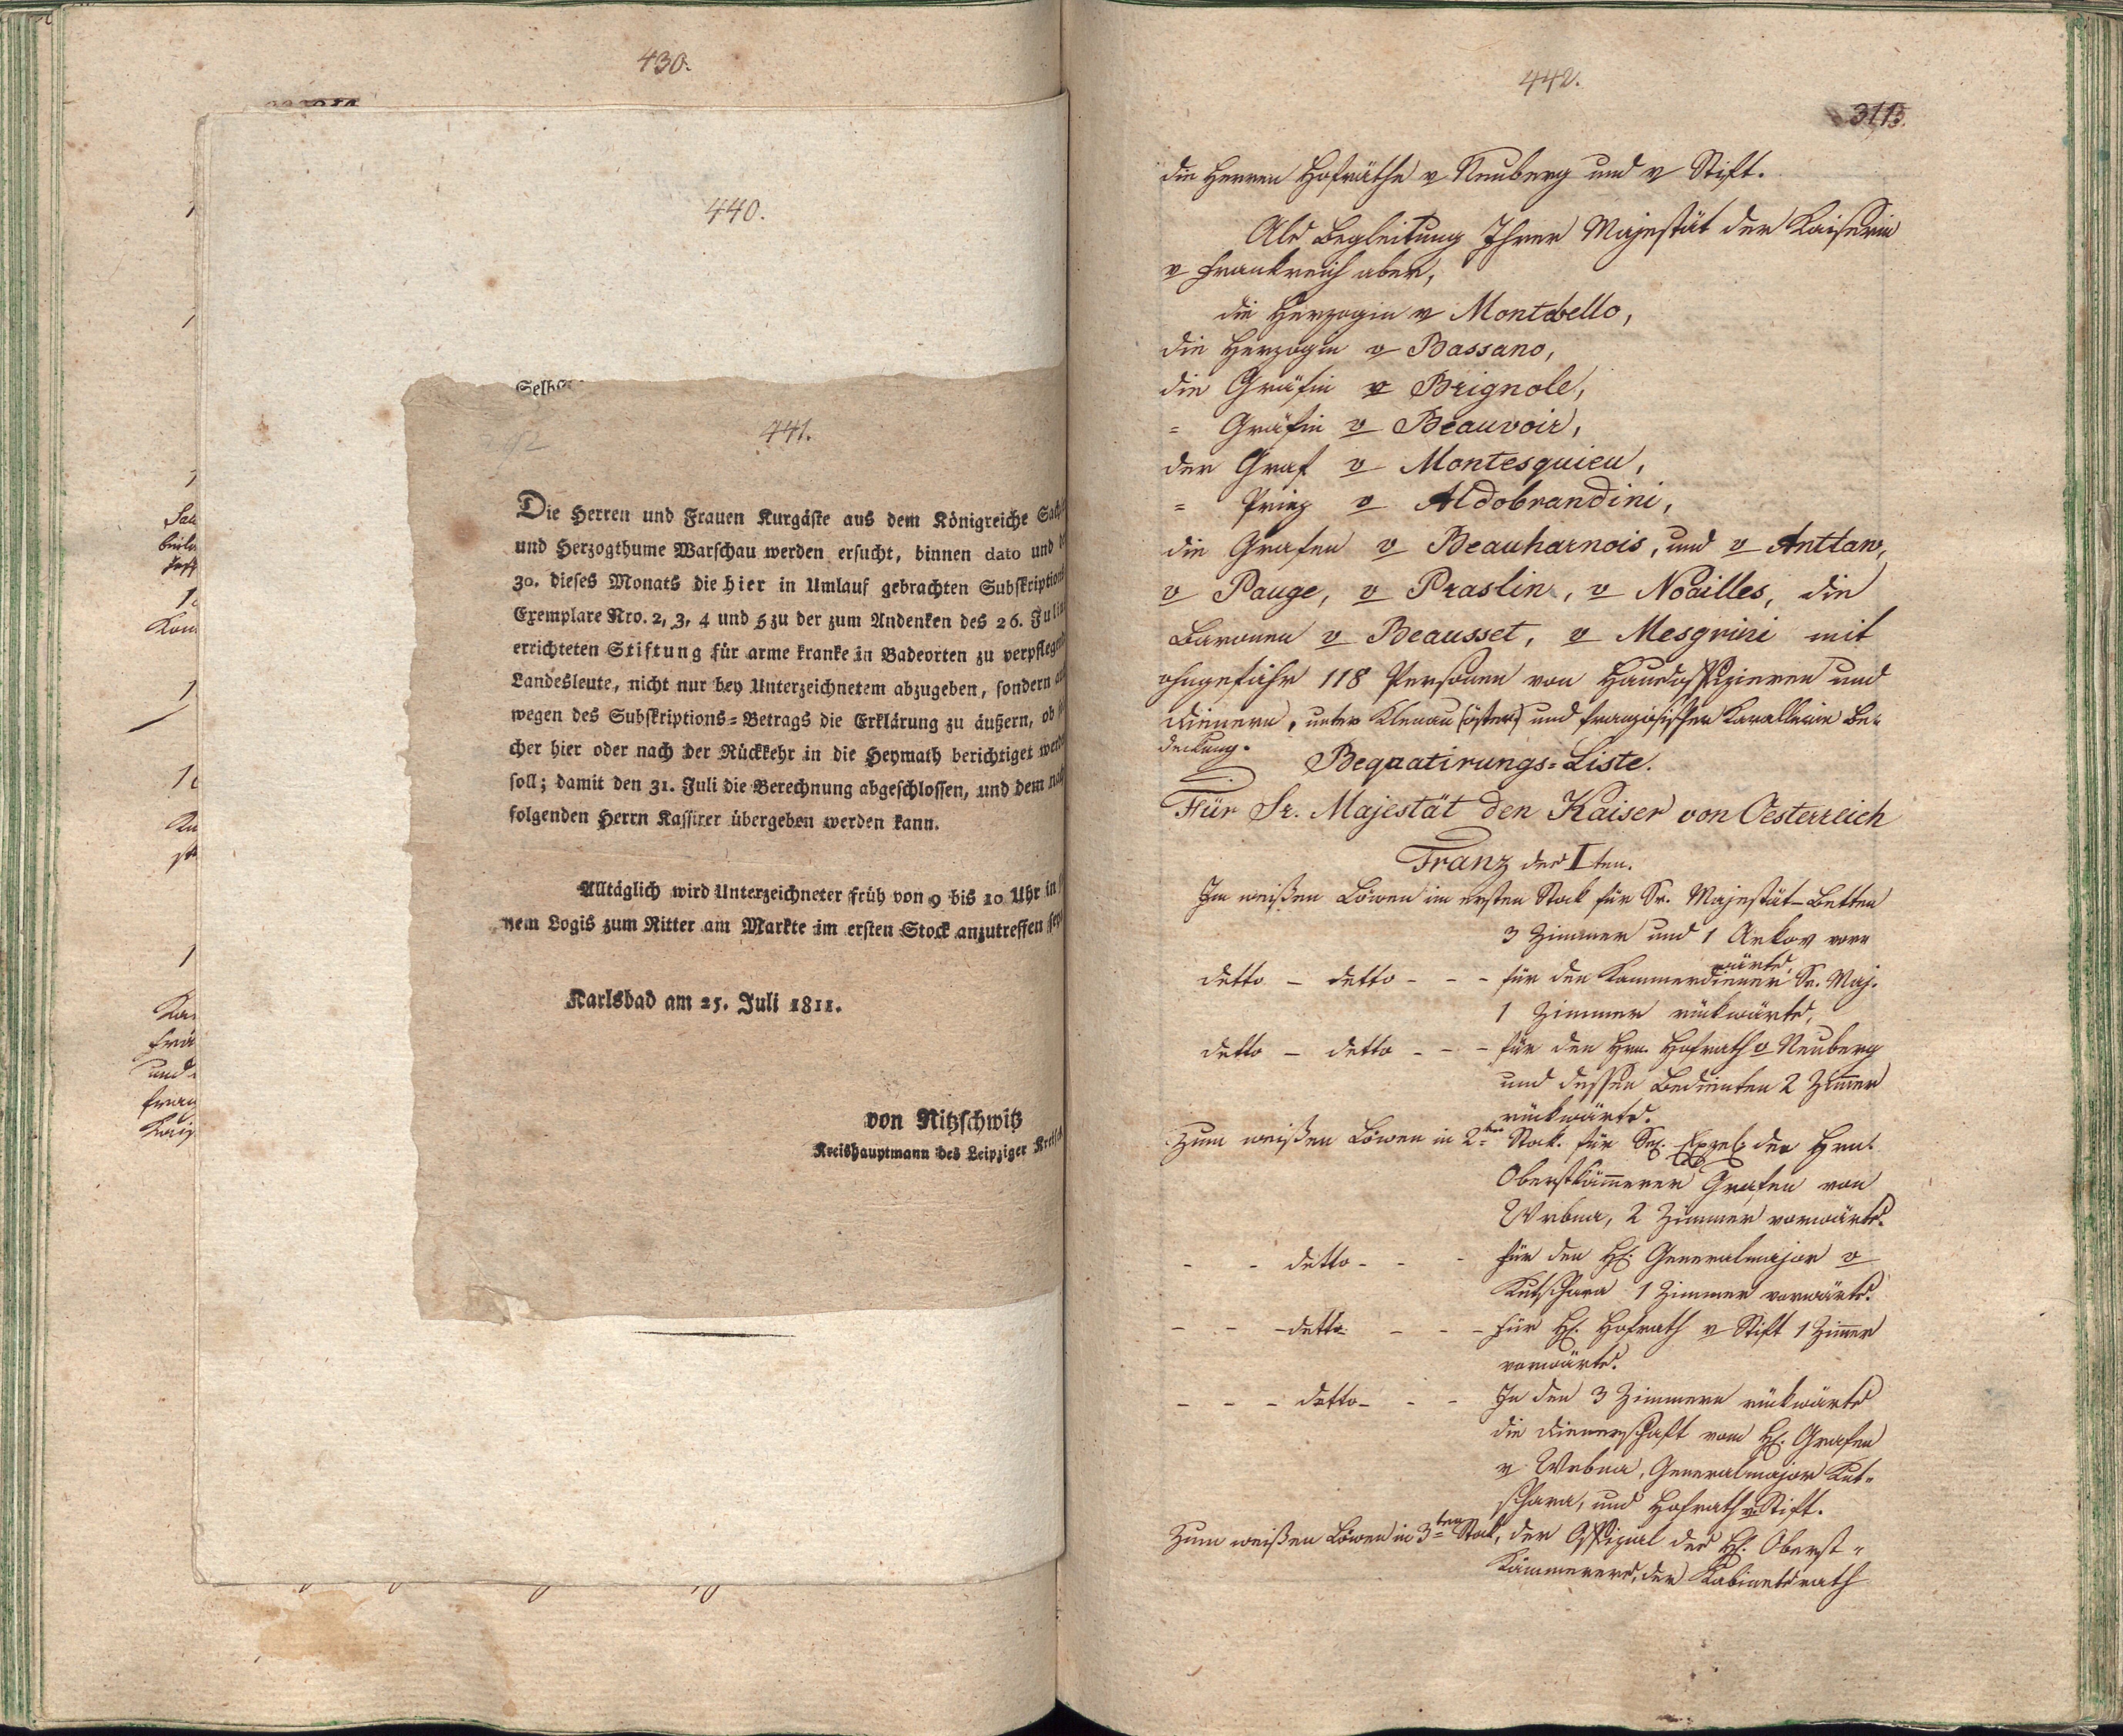 430.
440.
441.
Die Herren und Frauen Kurgäste aus dem Königreiche Sach
und Herzogthume Warschau werden ersucht, binnen dato und
30. dieses Monats die hier in Umlauf gebrachten Subskriptions
Exemplare Nro. 2, 3, 4 und 5 zu der zum Andenken des 26. Juliu
errichteten Stiftung für arme kranke in Badeorten zu verpflegend
Landesleute, nicht nur bey Unterzeichnetem abzugeben, sondern au
wegen des Subskriptions-Betrags die Erklärung zu äußern, ob
cher hier oder nach der Rückkehr in die Heymath berichtiget werde
soll; damit den 31. Juli die Berechnung abgeschlossen, und dem na
folgenden Herrn Kassirer übergeben werden kann.
Alltäglich wird Unterzeichneter früh von 9 bis 10 Uhr in
nem Logis zum Ritter am Markte im ersten Stock anzutreffen sey
Karlsbad am 25. Juli 1811.
von Nitzschwitz
Kreishauptmann des Leipziger Kreis
442.
die Herren Hofräthe v Neuberg und v Stift.
Als Begleitung Ihrer Majestät der Kaiserin
v Frankreich aber,
die Herzogin v Montebello,
die Herzogin v Bassano,
die Gräfin v Brignole,
= Gräfin v Beauvoir,
der Graf v Montesquieu,
= Prinz v Aldobrandini,
die Grafen v Beauharnois, und v Anttaw,
v Pauge, v Praslin, v Noailles, die
Baronen v Beausset, v Mesgrini mit
ohngefähr 118 Personen von Hausoffizieren und
Dienern, unter Klenau (öster) und französischer Kavallerie Be-
deckung.
Bequatirungs-Liste.
Für Sr. Majestät den Kaiser von Oesterreich
Franz der I ten.
Im weißen Löwen im ersten Stok für Sr. Majestät-Betten
3 Zimmer und 1 Arkov vor
wärts,
detto - detto - - - für den Kammerdiener Sr. Maj.
1 Zimmer rükwärts,
detto - detto - - - für den Hrn. Hofrath v Neuberg
und dessen Bedienten 2 Zimmer
rükwärts.
Zum weißen Löwen in 2ten Stok. für Se. Exzel. den Hrn.
Oberstkämmerer Grafen von
Wrbna, 2 Zimmer vorwärts.
- - detto - - - für den H. Generalmajor v
Kutschera 1 Zimmer vorwärts.
- - - detto - - - für H. Hofrath v Stift 1 Zimmer
vorwärts.
- - - detto - - - In den 3 Zimmern rükwärts
die Dienerschaft vom H. Grafen
v Wrbna, Generalmajor Kut-
schera, und Hofrath v Stift.
Zum weißen Löwen in 3ten Stok, der Offizial des H. Oberst-
Kämmerers, der Kabinetsrath